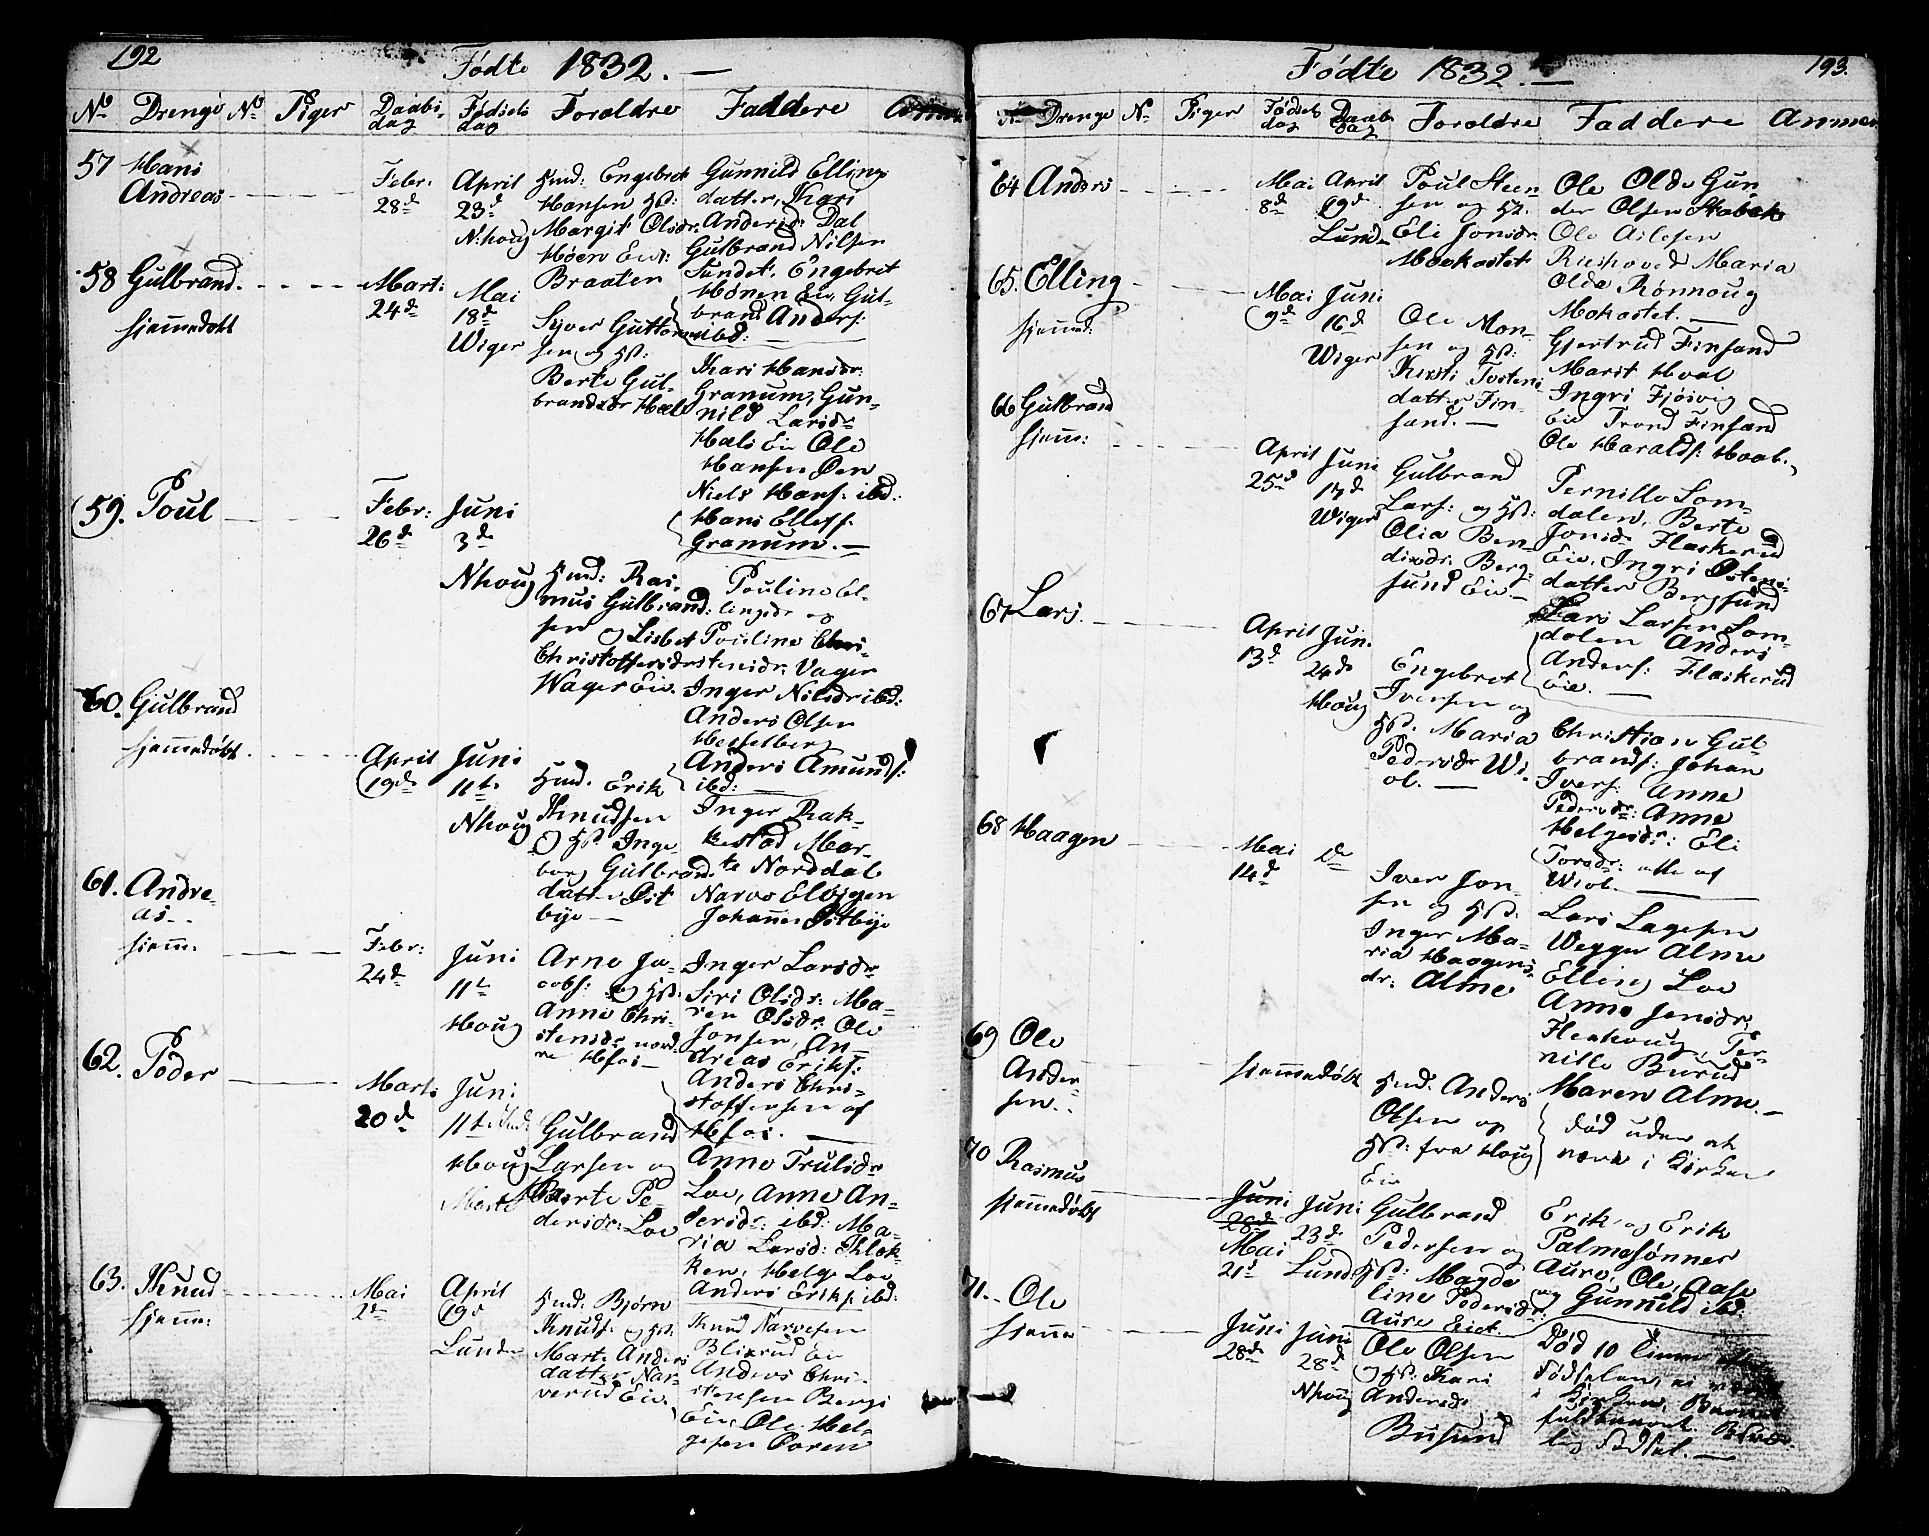 192
Fødte 1832. —
No Drenge No Piger Daabsdag Fødselsdag Forældre Faddere
57 Hans Andreas
Febr. 28de
April 23d Nhoug
Huusmd: Engebret
Hansen
Margit Olsdr.
Høen Eie:
Braaten
Gunnild Ellings
datter, Kari
Andersd: Dal
Gulbrand Nilsen
Sundet, Engebret
Hønen Eie, Gul-
brand Anders:
ibd:
58 Gulbrand.
hjemmedøbt
Mart: 24de
Mai 18d Wiger
Syver Guttorm
sen og
Berte Gul-
brandsdr Hæls
Kari Hansdr:
Granum, Gun-
nild Larsdr
Hæls Eie Ole
Hansen Øen
Niels Hans: ibd:
Hans Ellefs:
Granum. —
59. Poul
Febr: 26de
Juni 3de Nhoug
Ras-
mus Gulbrand:
sen og Lisbet
Christoffersdr
Wager Eie
Pouline El-
lingsdr og
Pouline Chri-
stensdr: Vager
Inger Nilsdr ibd:
Anders Olsen
Hesselberg
Anders Amunds:
ibd: —
60. Gulbrand
hjemmedøbt
April 19de
Juni 11te Nhoug
Erik
Knudsen
og Inge-
borg Gulbrands
datter Øst
bye —
Inger Rak-
kestad Mar-
te Norddal
Narve Elsjgen
Johannes Østbye
61. Andre-
as.
hjemm:
Febr: 24de
Juni 11te Houg
Arne Ja-
cobs: og
Anne Chri-
stensdr nord-
re Hfos —
Inger Larsdr
Siri Olsdr: Ma-
ren Olsdr: Ole
Jonsen, An-
dreas Eriks:
Anders Chri-
stoffersen af
Hfos. —
62. Peder
Mart: 20de
Juni 11te Houg
Gulbrand
Larsen og
Berte Pe-
dersdr: Loe
Anne Trulsdr
Loe, Anne An-
dersdr: ibd: Ma-
ria Larsd:
ken, Helge Loe
Anders Eriks: ibd:
63. Knud
hjemm:
Mai 2de
April 19de Lunder
Bjørn
Knuds: og
Marte Anders
datter Nar-
verud Eie.
Knud Narvesen
Blixrud Eie
Anders Chri-
stensen Bergs
Eie, Ole Hel-
gesen Poren
193.
Fødte 1832. —
No Drenge No Piger Fødselsdag Daabsdag Forældre Faddere Anmer
64 Anders
Mai 8de
April 19de Lunde
Poul Steen
sen og
Eli Jonsdr:
Moekastet
Ole Olde Gun
der Olsen Stabek
Ole Aslesen
Rushoved Maria
Olde Rønnoug
Mokastet. —
65. Elling
hjemmed:
Mai 9de
Juni 16de Wiger
Ole Mon-
sen og
Kirsti Tostens
datter Fin-
sand. —
Gjertrud Finsand
Marit Hval
Ingri Fjøsvig
Eie Trond Finsand
Ole Haralds: Hval.
66 Gulbrand
hjemm:
April 25de
Juni 17de Wiger
Gulbrand
Lars: og
Olia Ben-
dixdr: Berg-
sund Eie —
Pernille Som-
dalen, Berte
Jonsdr Flaskerud
Eie, Ingri Østens-
datter Bergsund
Lars Larsen Som-
dalen Anders
Anders: Flaskerud
Eie. —
67 Lars.
April 13de
Juni 24de Houg
Engebret
Iversen og
Maria
Pedersdr Wi-
ol. —
Christian Gul-
brands: Johan
Ivers: Anne
Pedersdr: Anne
Helgesdr: Eli
Torsdr: alle af
Wiol. —
68 Haagen
Mai 14de
do
Iver Jon-
sen og
Inger Ma-
ria Haagens-
dr: Alme
Lars Lagesen
Wegger Alme
Elling Loe
Anne Jensdr:
Flexhoug, Per-
nille Burud
Maren Alme. —
69 Ole
Ander-
sen.
hjemmedøbt
Anders
Olsen og
fra Houg
Eie
død uden at
være i Kirken
70 Rasmus
hjemmedøbt
Juni 28de
Mai 21de
Juni 23de Lund
Gulbrand
Pedersen og
Magde-
line Pedersdr:
Aure Eiet.
Erik og Erik
Palmesønner
Aure, Ole, Aase
og Gunnild ibd:
71. Ole
hjemme
Juni 28de
Juni 28de Nhoug
Ole Olsen
og Kari
Andersdr
Busund
Død 10 Timer efter
Fødselen, ei været
i Kirken, Barnet
fuldbaaret.
lig Fødsel. —